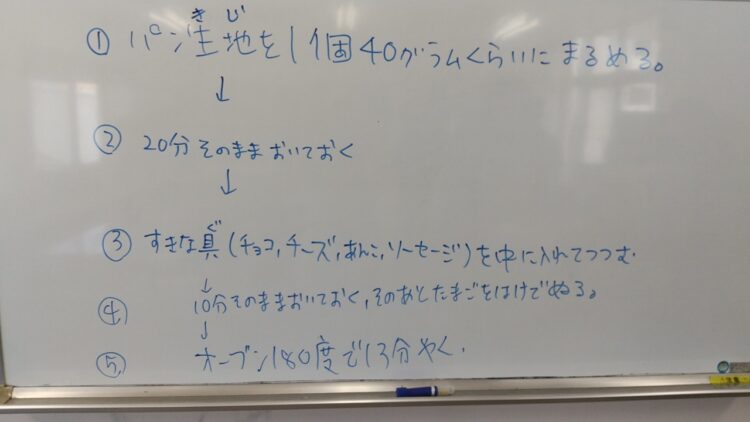 きじ
① パン生地を1個40グラムくらいにまるめる。
↓
② 20分そのままおいておく
↓
ぐ
③ すきな具(チョコ,チーズ,あんこ,ソーセージ)を中に入れてつつむ.
↓
④ 10分そのままおいておく,そのあとたまごをはけでぬる。
↓
⑤ オーブン180度で13分やく.